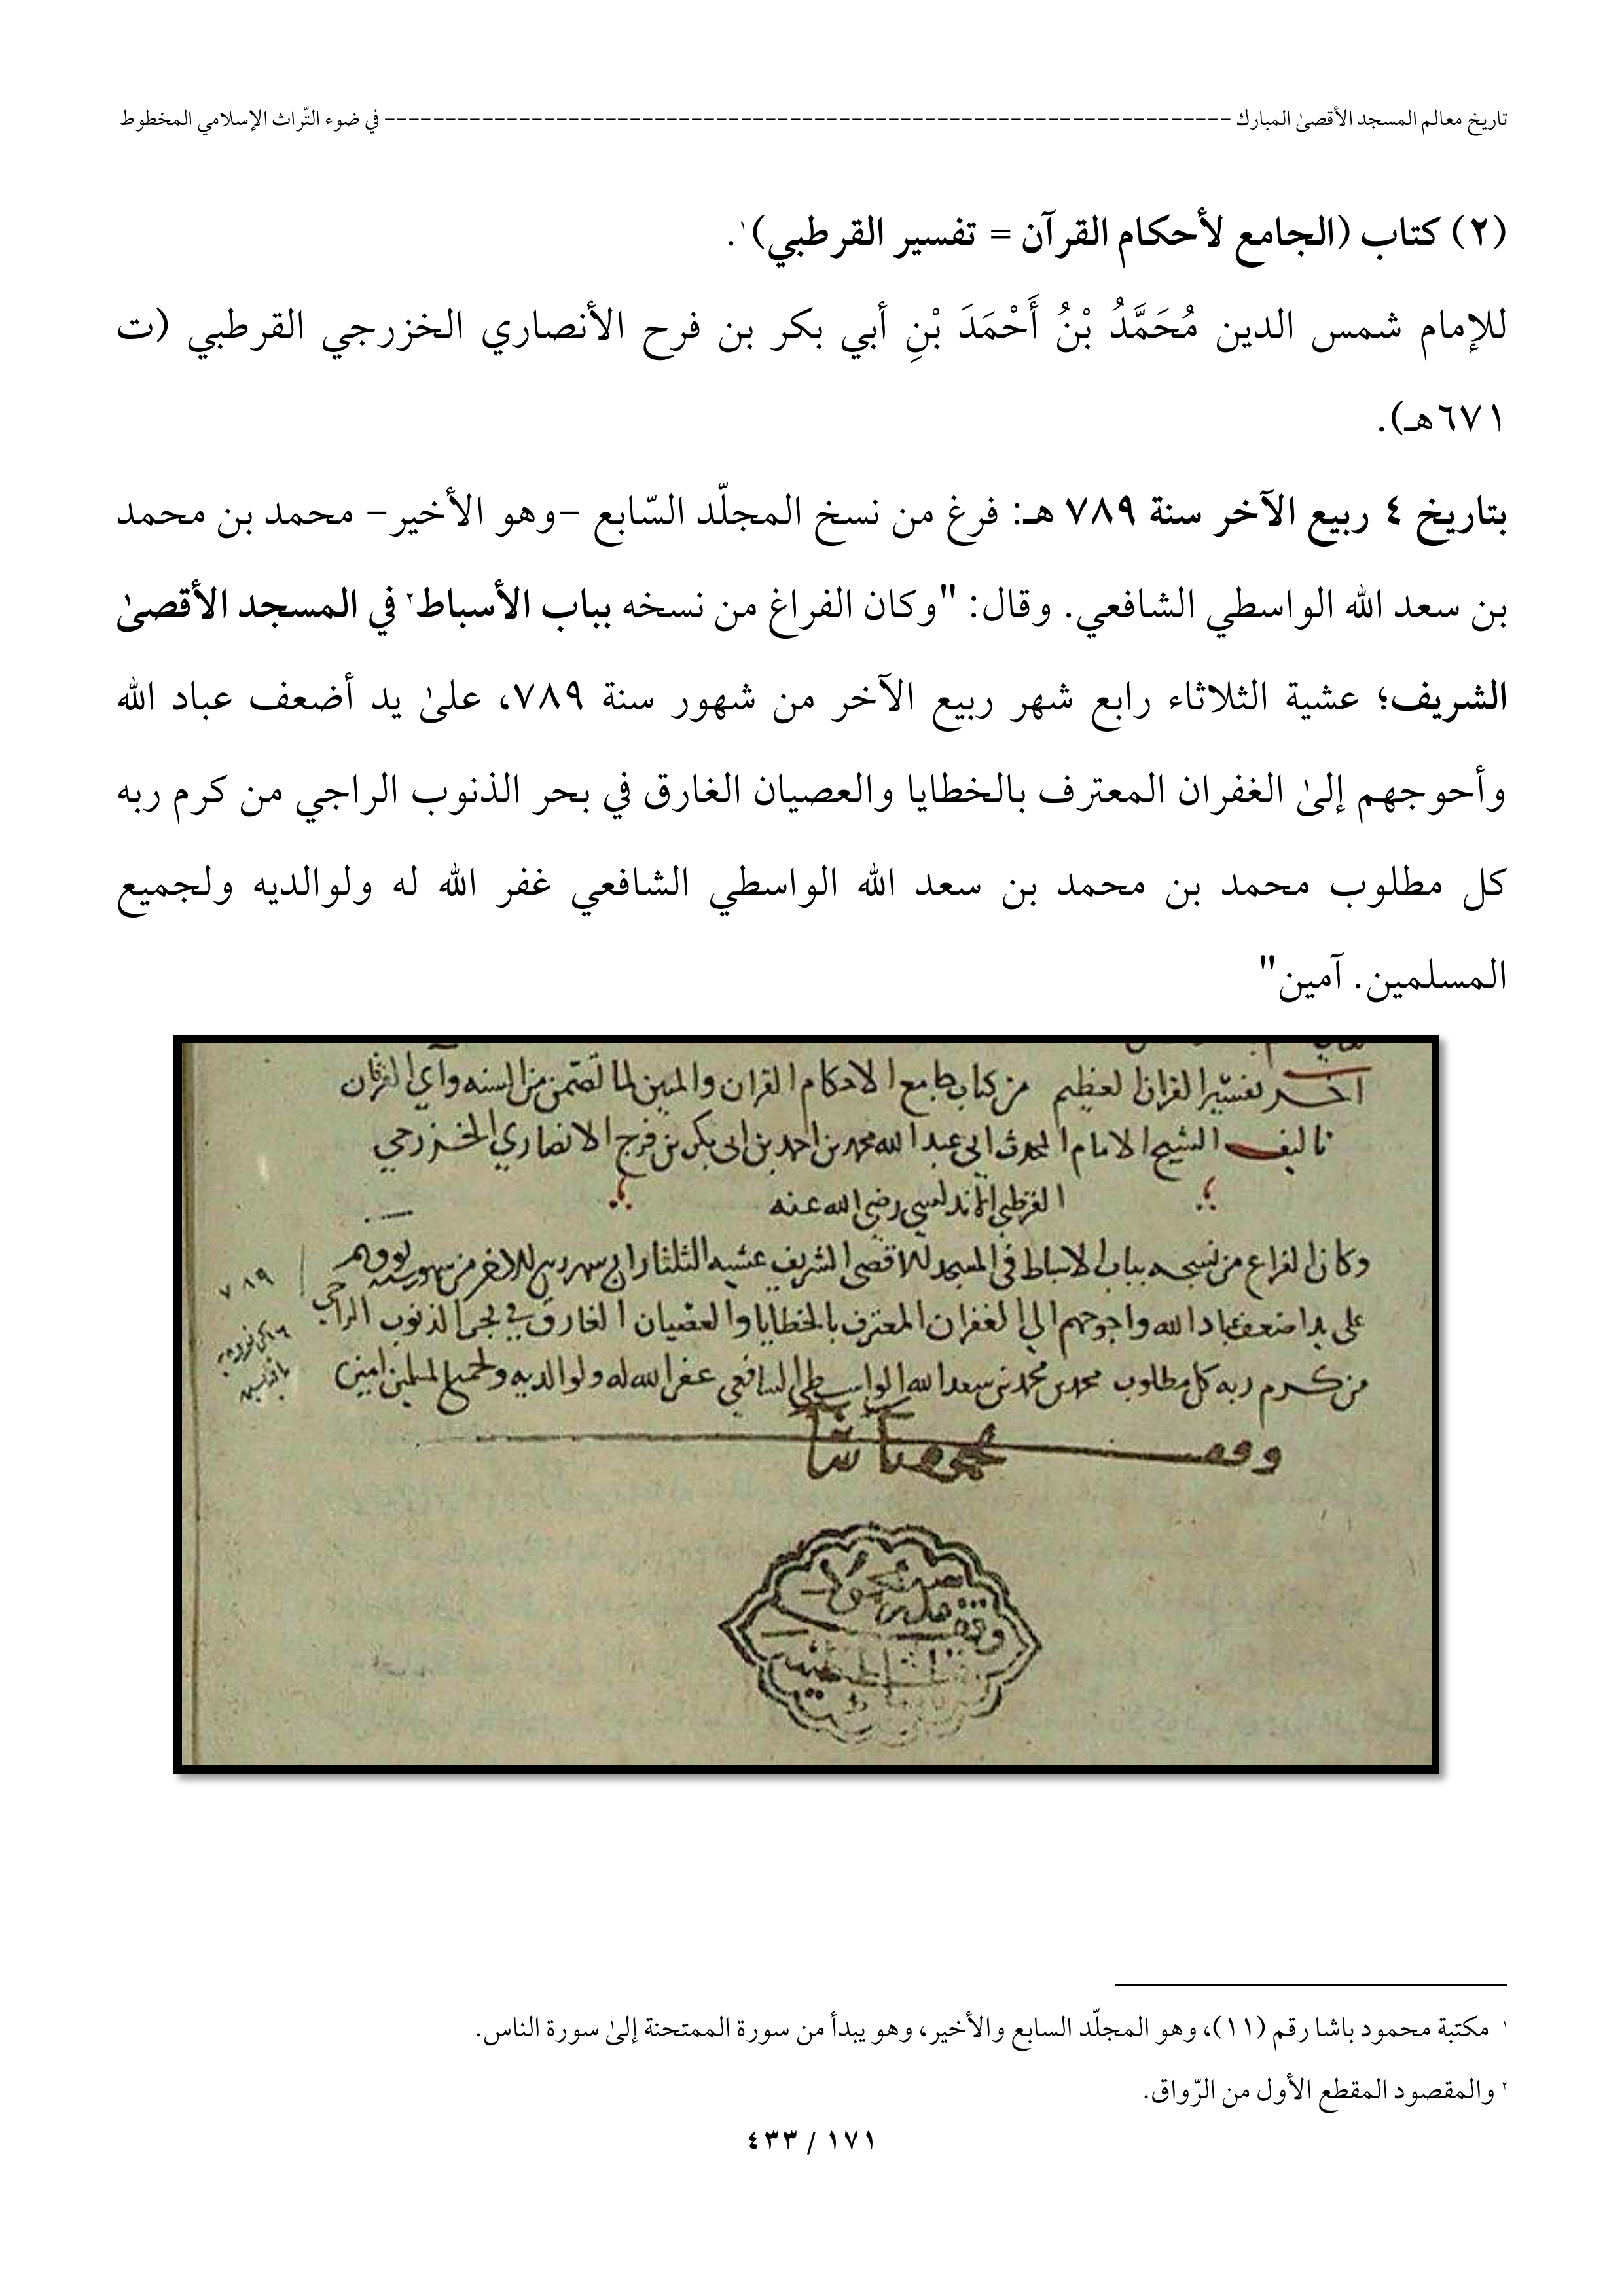 تاريخ معالم المسجد الأقصىٰ المبارك ---------------------------------------------------------------------- في ضوء التّراث الإسلامي المخطوط
(٢) كتاب (الجامع لأحكام القرآن = تفسير القرطبي)١.
للإمام شمس الدين مُحَمَّدُ بْنُ أَحْمَدَ بْنِ أبي بكر بن فرح الأنصاري الخزرجي القرطبي (ت
٦٧١هـ).
بتاريخ ٤ ربيع الآخر سنة ٧٨٩ هـ: فرغ من نسخ المجلّد السّابع -وهو الأخير- محمد بن محمد
بن سعد الله الواسطي الشافعي. وقال: "وكان الفراغ من نسخه بباب الأسباط٢ في المسجد الأقصىٰ
الشريف؛ عشية الثلاثاء رابع شهر ربيع الآخر من شهور سنة ٧٨٩، علىٰ يد أضعف عباد الله
وأحوجهم إلىٰ الغفران المعترف بالخطايا والعصيان الغارق في بحر الذنوب الراجي من كرم ربه
كل مطلوب محمد بن محمد بن سعد الله الواسطي الشافعي غفر الله له ولوالديه ولجميع
المسلمين. آمين"
آخر تفسير القران العظيم من كتاب جامع الاحكام القران والمبين لما تضمن من السنه وآي الفرقان
تاليف الشيخ الامام المحدث ابي عبد الله محمد بن احمد بن ابي بكر بن فرح الانصاري الخزرجي
القرطبي الاندلسي رضي الله عنه
وكان الفراغ من نسخه بباب الاسباط في المسجد الاقصى الشريف عشيه الثلثا رابع شهر ربيع الاخر من شهور سنه
٧٨٩
على يد اضعف عباد الله واحوجهم الى الغفران المعترف بالخطايا والعصيان الغارق في بحر الذنوب الراجي
من كرم ربه كل مطلوب محمد بن محمد بن سعد الله الواسطي الشافعي غفر الله له ولوالديه ولجميع المسلمين امين
وقف محمود باشا
١ مكتبة محمود باشا رقم (١١)، وهو المجلّد السابع والأخير، وهو يبدأ من سورة الممتحنة إلىٰ سورة الناس.
٢ والمقصود المقطع الأول من الرّواق.
١٧١ / ٤٣٣